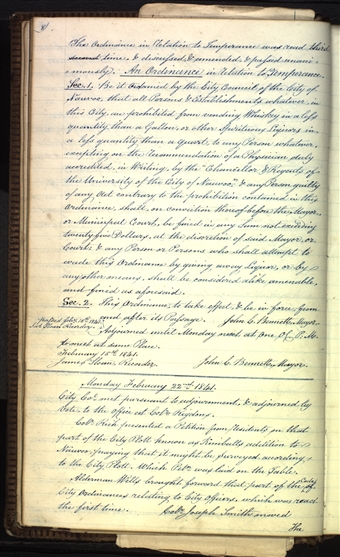 The Ordinance in Relation to Temperance was read third
second time, & discussed & amended, & passed unani-
mously. An Ordinance in Relation to Temperance.
Sec. 1. Be it ordained by the City Council of the City of
Nauvoo, that all Persons & Establishments whatever, in
this City, are prohibited from vending Whiskey in a less
quantity than a Gallon, or other Spirituous Liquors in
a less quantity than a Quart, to any Person whatever,
excepting on the Recommendation of a Physician duly
accredited, in Writing, by the Chancellor & Regents of
the University of the City of Nauvoo, & any Person guilty
of any Act contrary to the prohibition contained in this
Ordinance, shall, on conviction thereof before the Mayor,
or Municipal Court, be fined in any Sum not exceeding
twenty five Dollars, at the discretion of said Mayor, or
Court; & any Person or Persons who shall attempt to
evade this Ordinance by giving away Liquor, or by
any other means, shall be considered alike amenable,
and fined as aforesaid.
Sec. 2. This Ordinance to take effect, & be in force, from
and after its Passage. John C. Bennett, Mayor.
Passed Feby. 15th. 1841.
Jas. Sloan, Recorder.
Adjourned until Monday next, at One O'C. P.M.
to meet at same Place.
February 15th. 1841.
James Sloan, Recorder John C. Bennett, Mayor
Monday February 22nd. 1841.
City Col. met pursuant to adjournment, & adjourned by
Vote, to the office of Colr. Rigdons.
Colr. Rich presented a Petition from Residents on that
part of the City Plott known as Kimballs addition to
Nauvoo, praying that it might be surveyed according
to the City Plott. Which Petn. was laid on the Table.
Alderman Wells brought forward that part of the
City Ordinances relating to City officers, which was read
the first time.
Colr. Joseph Smith moved
The